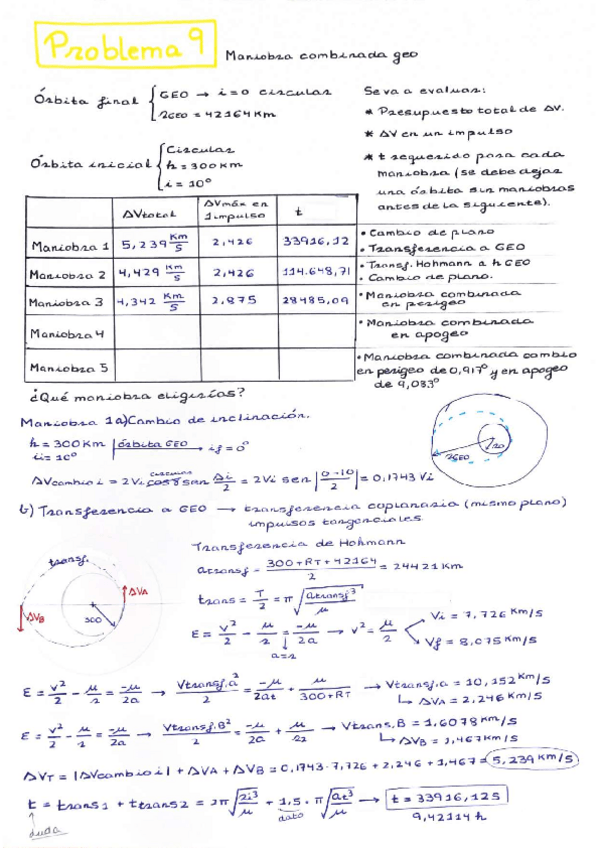 Problema 9 Maniobra combinada geo
Órbita final { GEO → i = 0 circular
rGEO = 42164 Km
Órbita inicial { Circular
h = 300 Km
i = 10°
Se va a evaluar:
* Presupuesto total de ΔV.
* ΔV en un impulso
* t requerido para cada
maniobra (se debe dejar
una órbita sin maniobras
antes de la siguiente).
ΔVtotal | ΔVmáx en 1 impulso | t
Maniobra 1 | 5,239 Km/s | 2,426 | 33916,12 | • Cambio de plano • Transferencia a GEO
Maniobra 2 | 4,429 Km/s | 2,426 | 114.648,71 | • Transf. Hohmann a h GEO • Cambio de plano.
Maniobra 3 | 4,342 Km/s | 2,875 | 28485,09 | • Maniobra combinada en perigeo
Maniobra 4 | • Maniobra combinada en apogeo
Maniobra 5 | • Maniobra combinada cambio en perigeo de 0,917° y en apogeo de 9,083°
¿Qué maniobra eligirías?
Maniobra 1 a) Cambio de inclinación.
h = 300 Km | órbita GEO → if = 0°
ii = 10°
ΔVcambio i = 2Vi cosγ sen Δi/2 = 2Vi sen |0-10/2| = 0,1743 Vi
circular
rGEO
b) Transferencia a GEO → transferencia coplanaria (mismo plano)
impulsos tangenciales
Transferencia de Hohmann
atransf = (300 + RT + 42164)/2 = 24421 Km
ttrans = T/2 = π √(atransf³/μ)
E = v²/2 - μ/r = -μ/2a → v² = μ/r
a=r
Vi = 7,726 Km/s
Vf = 3,075 Km/s
transf.
ΔVA
ΔVB
300
E = v²/2 - μ/r = -μ/2a → Vtransf.a²/2 = -μ/2at + μ/(300+RT) → Vtransf.a = 10,152 Km/s
↳ ΔVA = 2,246 Km/s
E = v²/2 - μ/r = -μ/2a → Vtransf.B²/2 = -μ/2a + μ/r2 → Vtrans,B = 1,6078 Km/s
↳ ΔVB = 1,467 Km/s
ΔVT = |ΔVcambio i| + ΔVA + ΔVB = 0,1743 · 7,726 + 2,246 + 1,467 = 5,239 Km/s
t = ttrans1 + ttrans2 = 2π √(ri³/μ) + 1,5 · π √(at³/μ) → t = 33916,12s
duda
dato
9,42114 h